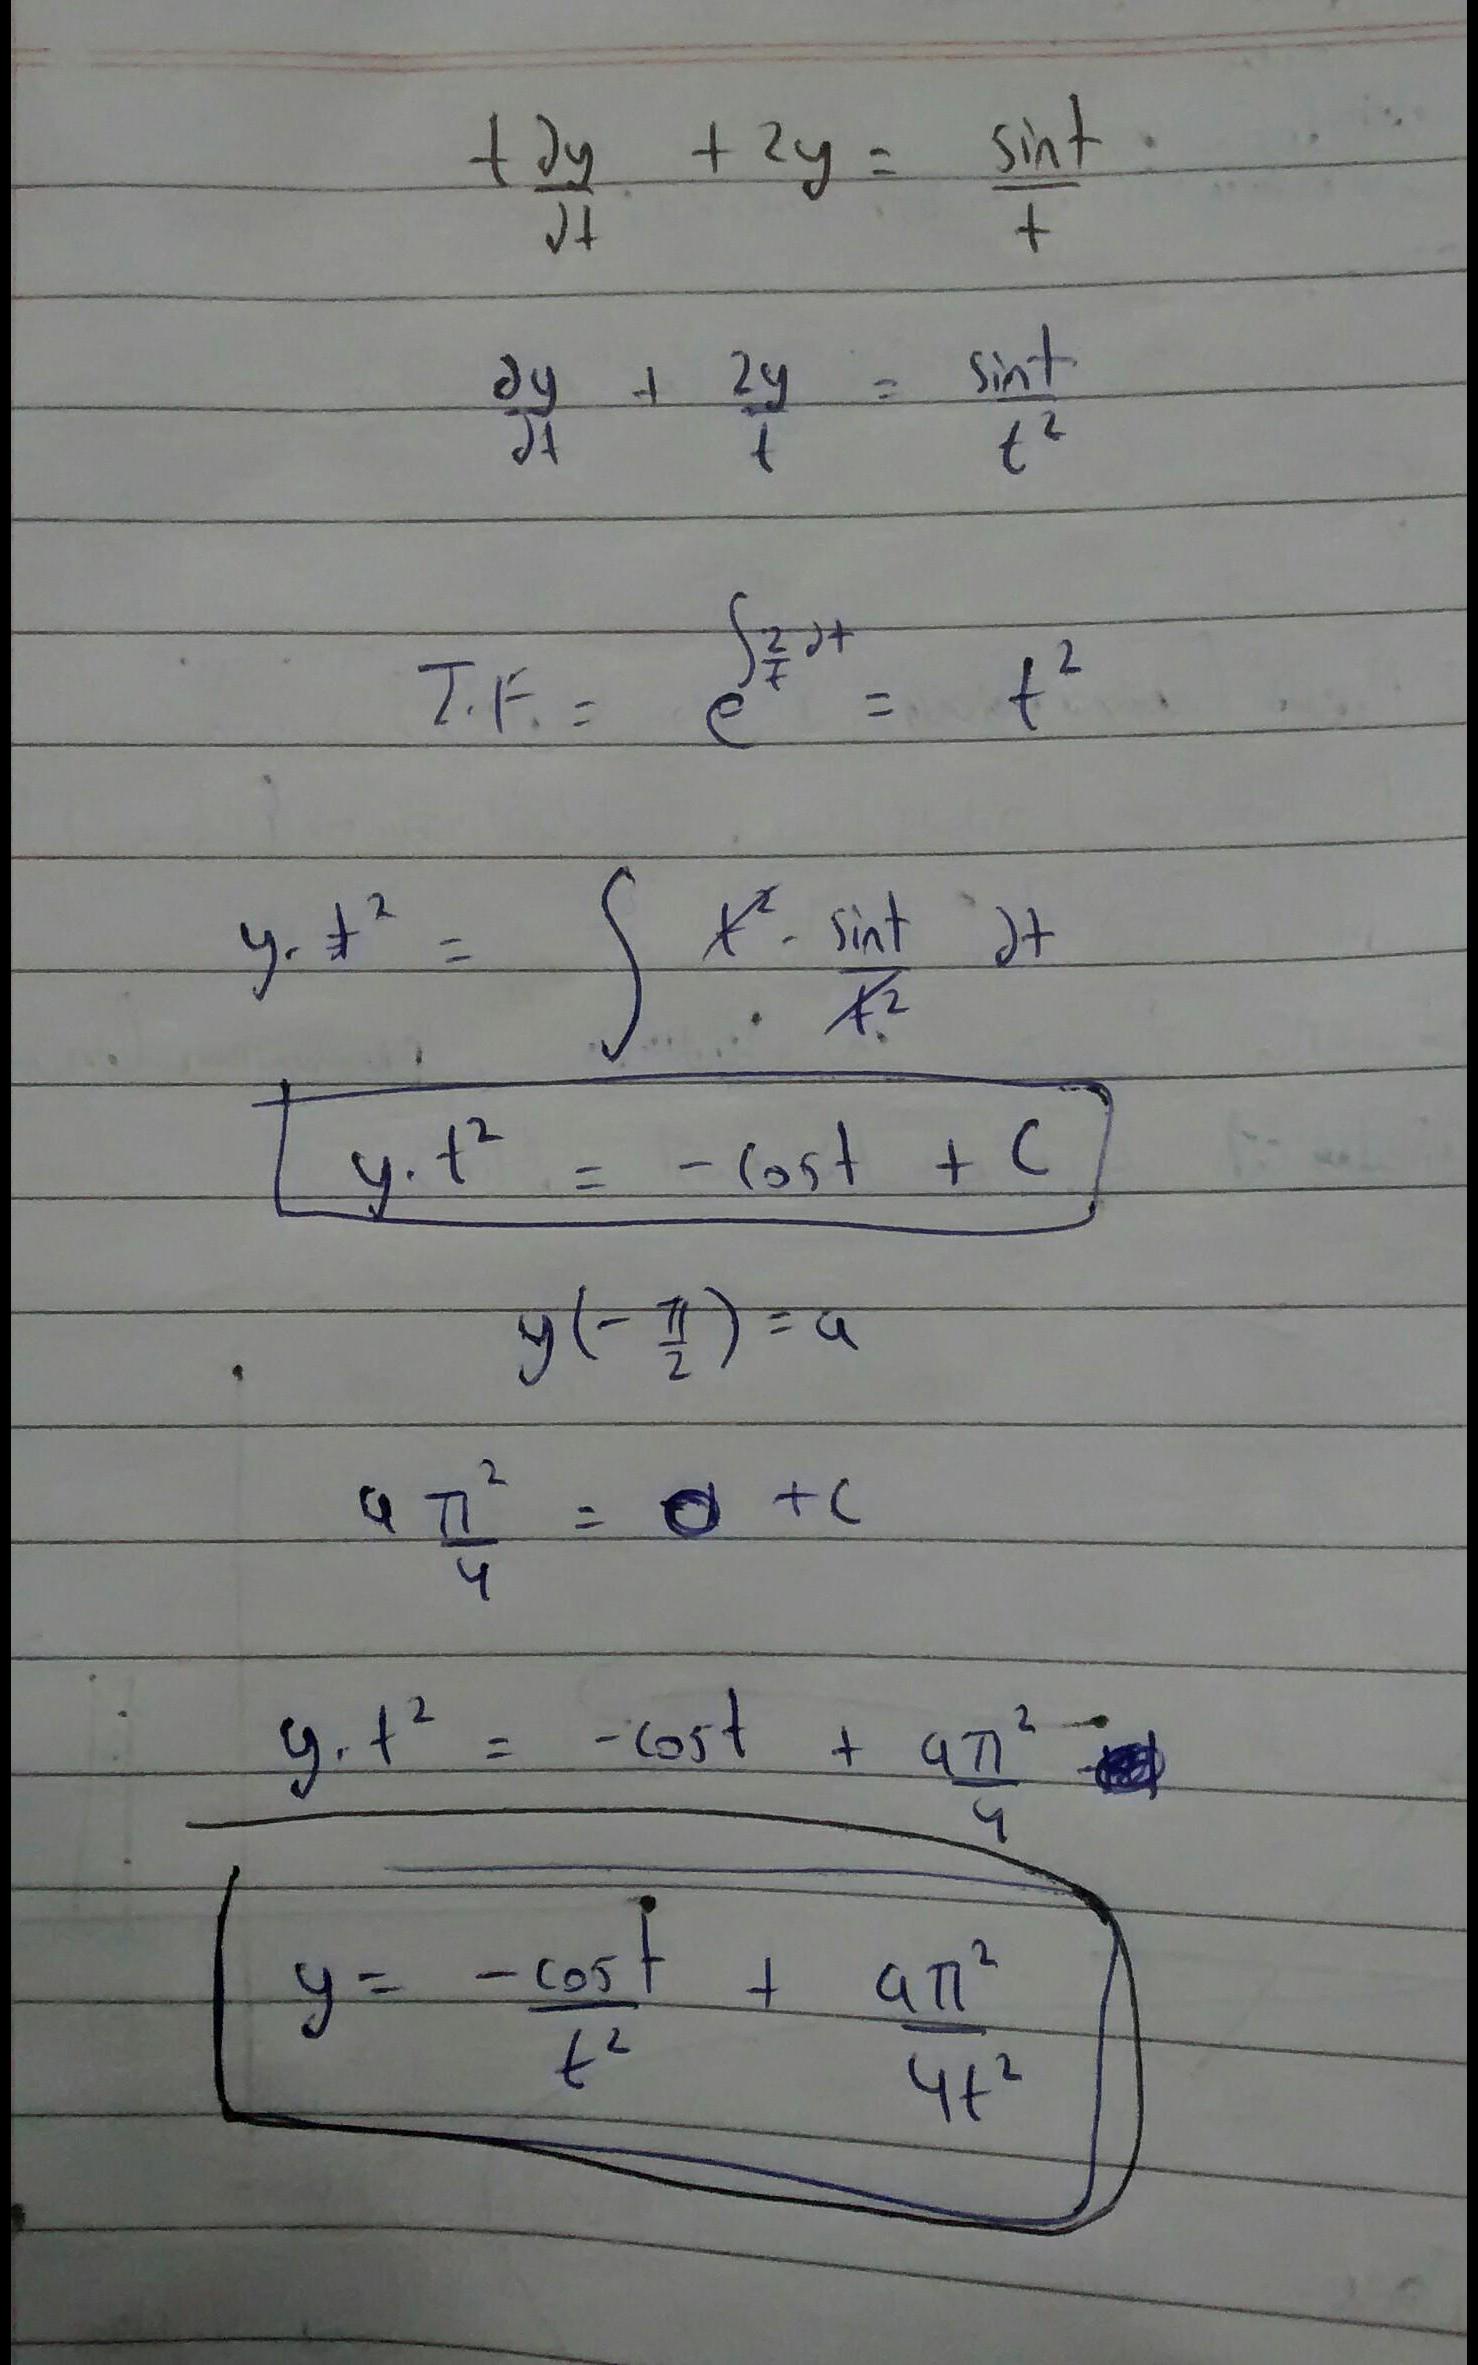 t ∂y/∂t + 2y = sint/t
∂y/∂t + 2y/t = sint/t²
I.F. = e^∫2/t ∂t = t²
y. t² = ∫ t². sint/t² ∂t
y. t² = -cost + C
y(-π/2) = a
a π²/4 = 0 + C
y. t² = -cost + aπ²/4
y = -cost/t² + aπ²/4t²